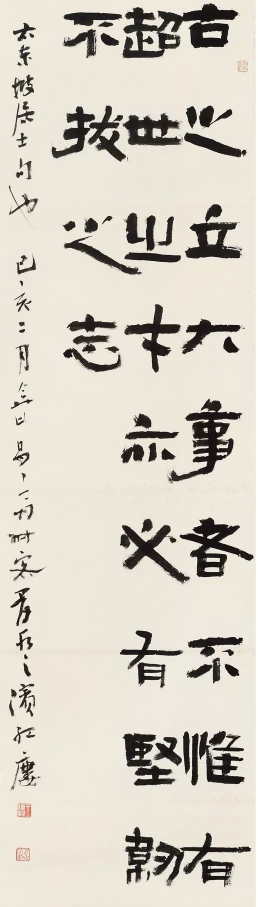 古之立大事者不惟有
超世之才亦必有堅韌
不拔之志
東坡居士句也 己亥二月 時客之濱